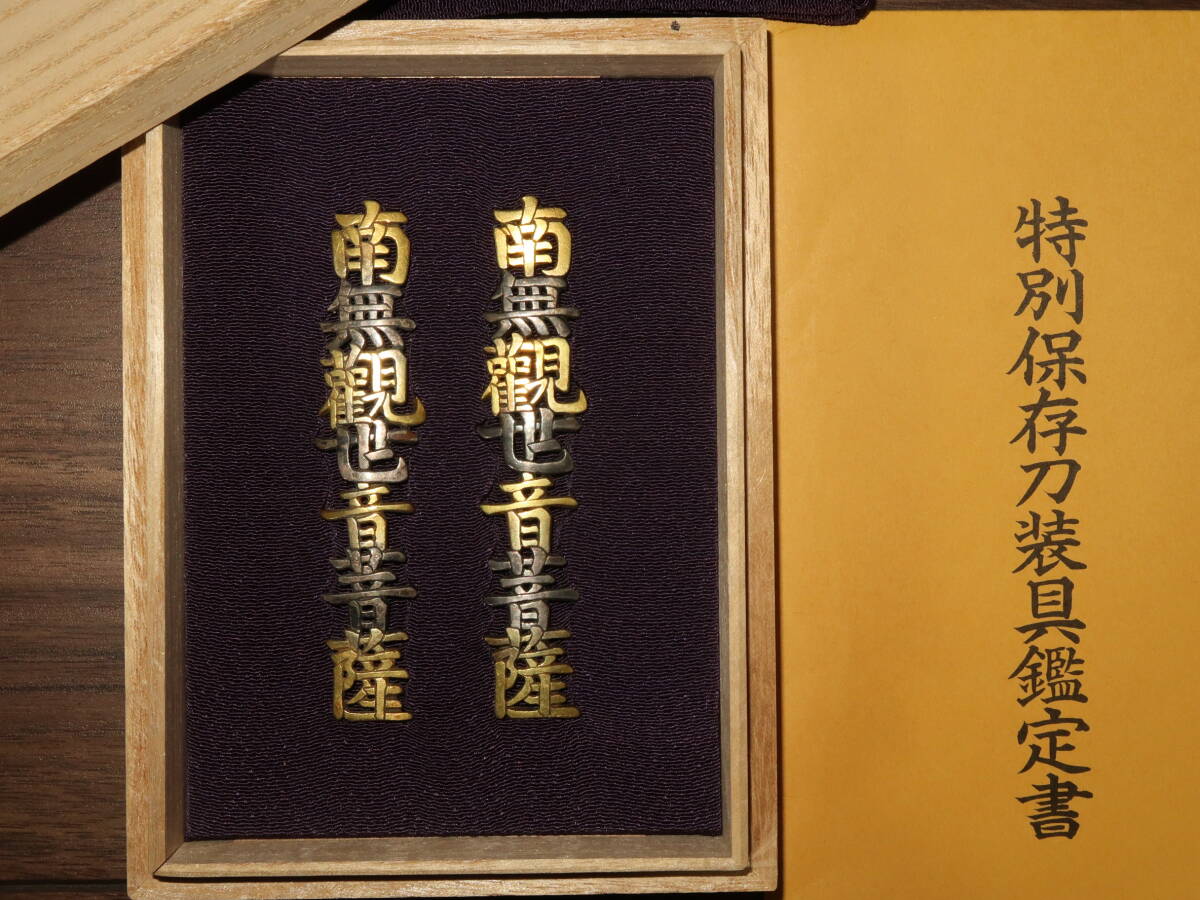 特別保存刀装具鑑定書
南無觀世音菩薩
南無觀世音菩薩